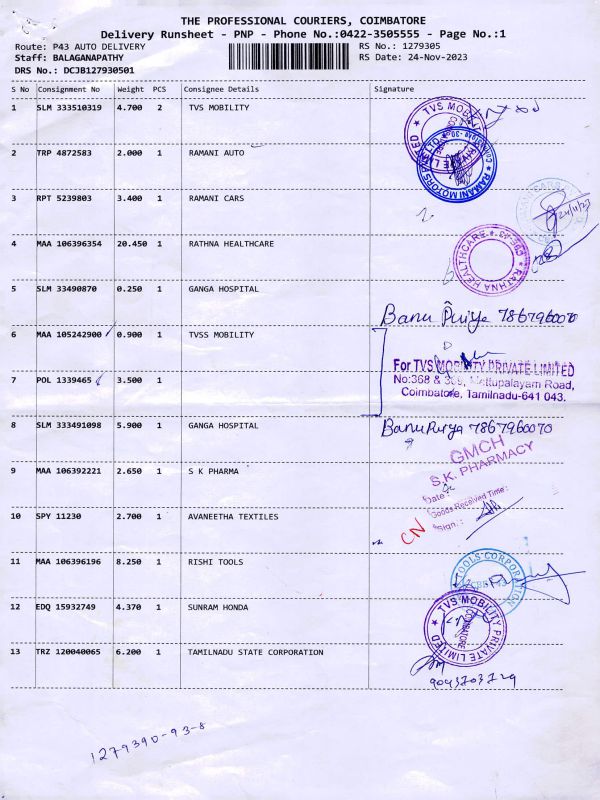 THE PROFESSIONAL COURIERS, COIMBATORE
Delivery Runsheet - PNP - Phone No.:0422-3505555 - Page No.:1
Route: P43 AUTO DELIVERY
RS No.: 1279305
Staff: BALAGANAPATHY
RS Date: 24-Nov-2023
DRS No.: DCJB127930501
S No Consignment No Weight PCS Consignee Details Signature
1 SLM 333510319 4.700 2 TVS MOBILITY
TVS MOBILITY
2 TRP 4872583 2.000 1 RAMANI AUTO
RAMANI MOTORS
3 RPT 5239803 3.400 1 RAMANI CARS
24/11/23
4 MAA 106396354 20.450 1 RATHNA HEALTHCARE
RATHNA HEALTHCARE
5 SLM 33490870 0.250 1 GANGA HOSPITAL
Banu Puiya 7867960070
6 MAA 105242900 0.900 1 TVSS MOBILITY
For TVS MOBILITY PRIVATE LIMITED
7 POL 1339465 3.500 1
No:368 & 369, Mettupalayam Road,
Coimbatore, Tamilnadu-641 043.
8 SLM 333491098 5.900 1 GANGA HOSPITAL
Banu Purya 7867960070
GMCH
9 MAA 106392221 2.650 1 S K PHARMA
S.K. PHARMACY
Date:
Goods Received Time:
Sign.:
10 SPY 11230 2.700 1 AVANEETHA TEXTILES
CN
11 MAA 106396196 8.250 1 RISHI TOOLS
TOOLS CORPORATION
12 EDQ 15932749 4.370 1 SUNRAM HONDA
TVS MOBILITY PRIVATE LIMITED
COIMBATORE
13 TRZ 120040065 6.200 1 TAMILNADU STATE CORPORATION
9043703729
1279390-93-8